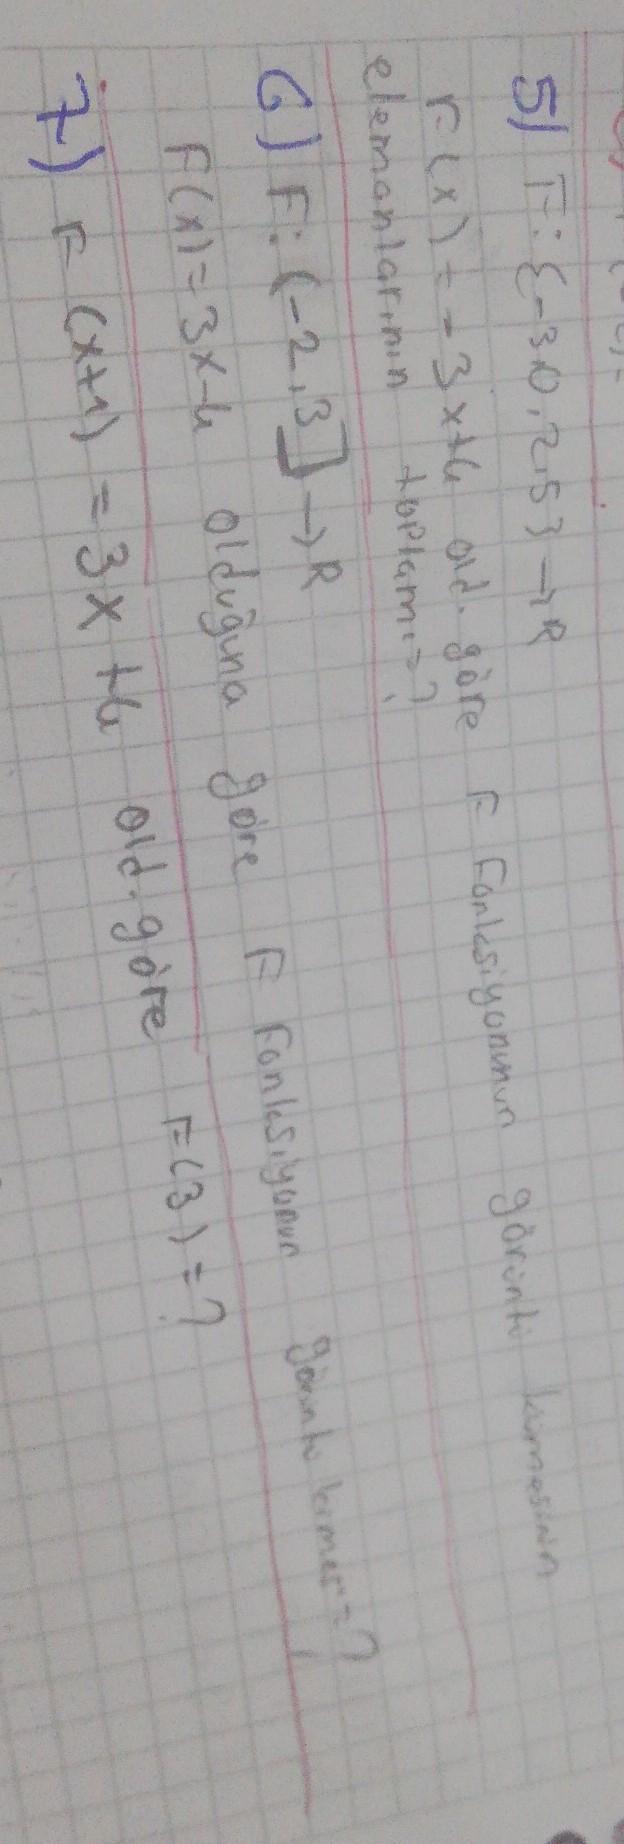 5) F: {-3,0,2,5} → R
F(x) = -3x+4 old. göre F Fonksiyonunun görüntü kümesinin
elemanlarının toplamı=?
6) F: (-2,3] → R
F(x) = 3x-4 olduğuna göre F Fonksiyonun görüntü kümesi=?
7) F(x+1) = 3x+4 old. göre F(3) = ?